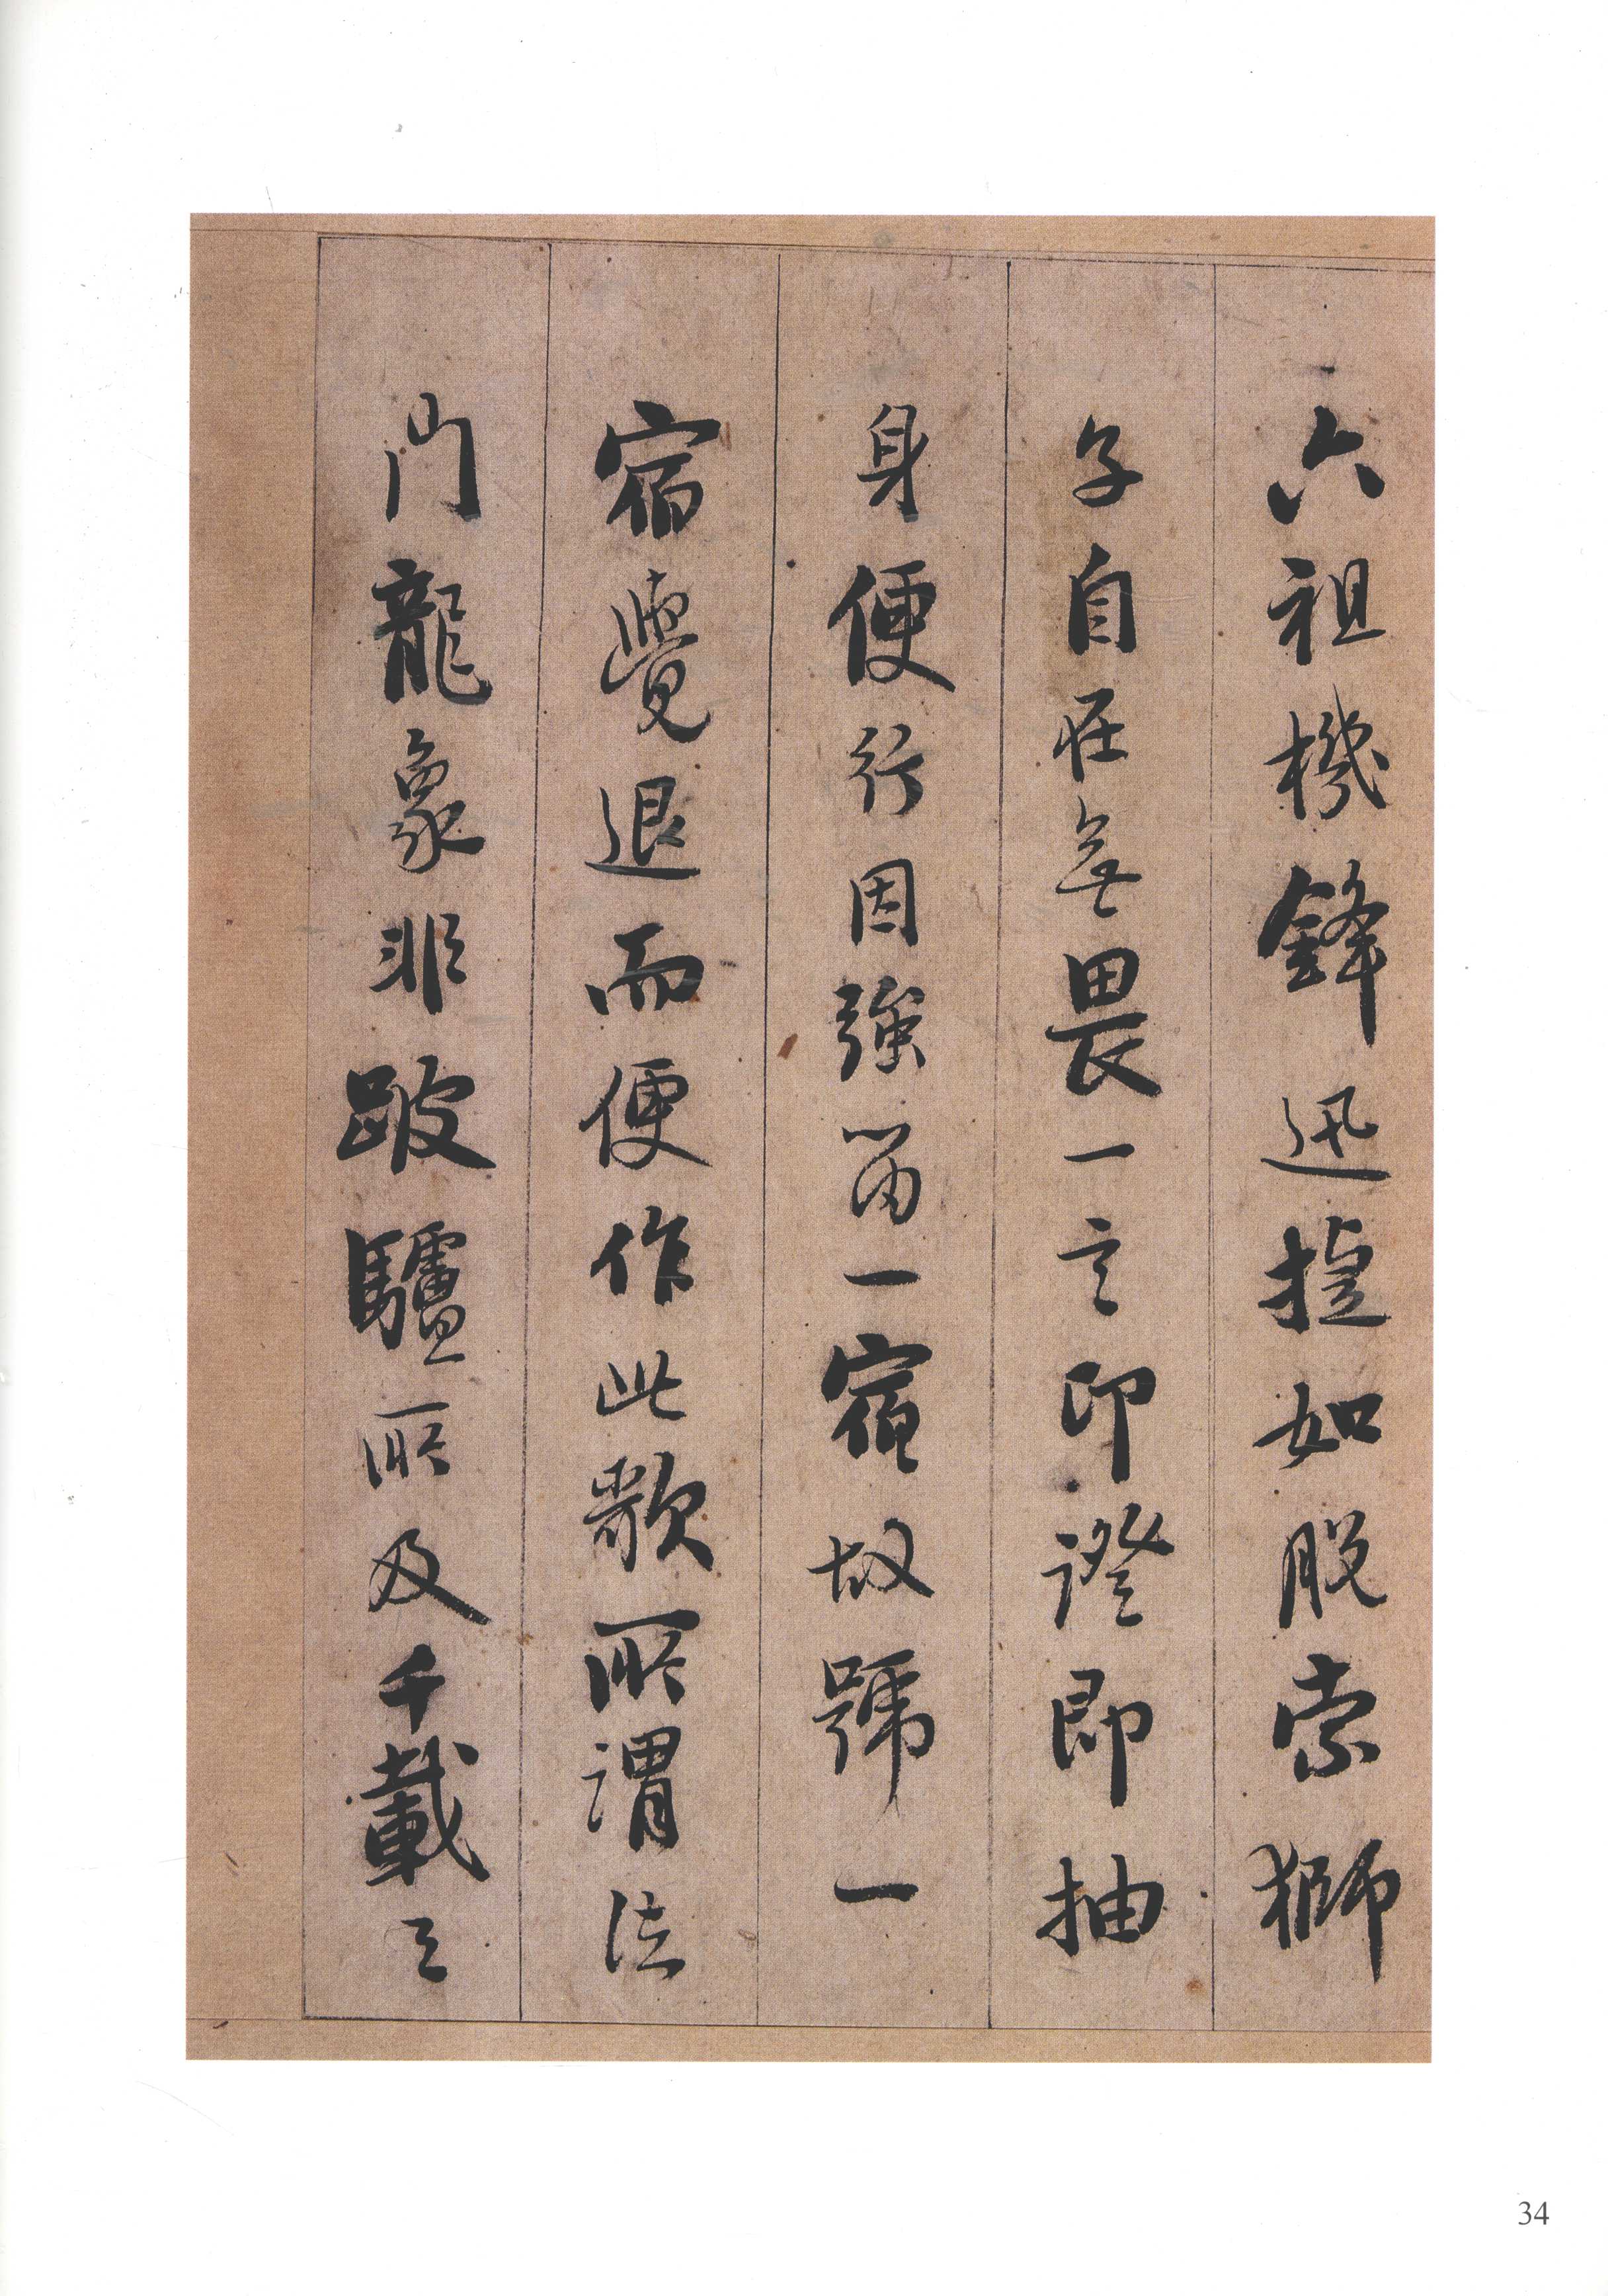 六祖機鋒迅捷如脫索獅
子自在無畏一言印證即抽
身便行因強留一宿故號一
宿覺退而便作此歌所謂法
門龍象非跛驢所及千載之
34